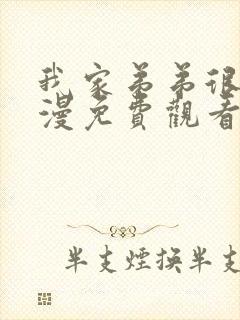 我家弟弟很
漫免費觀看
半支煙換半支